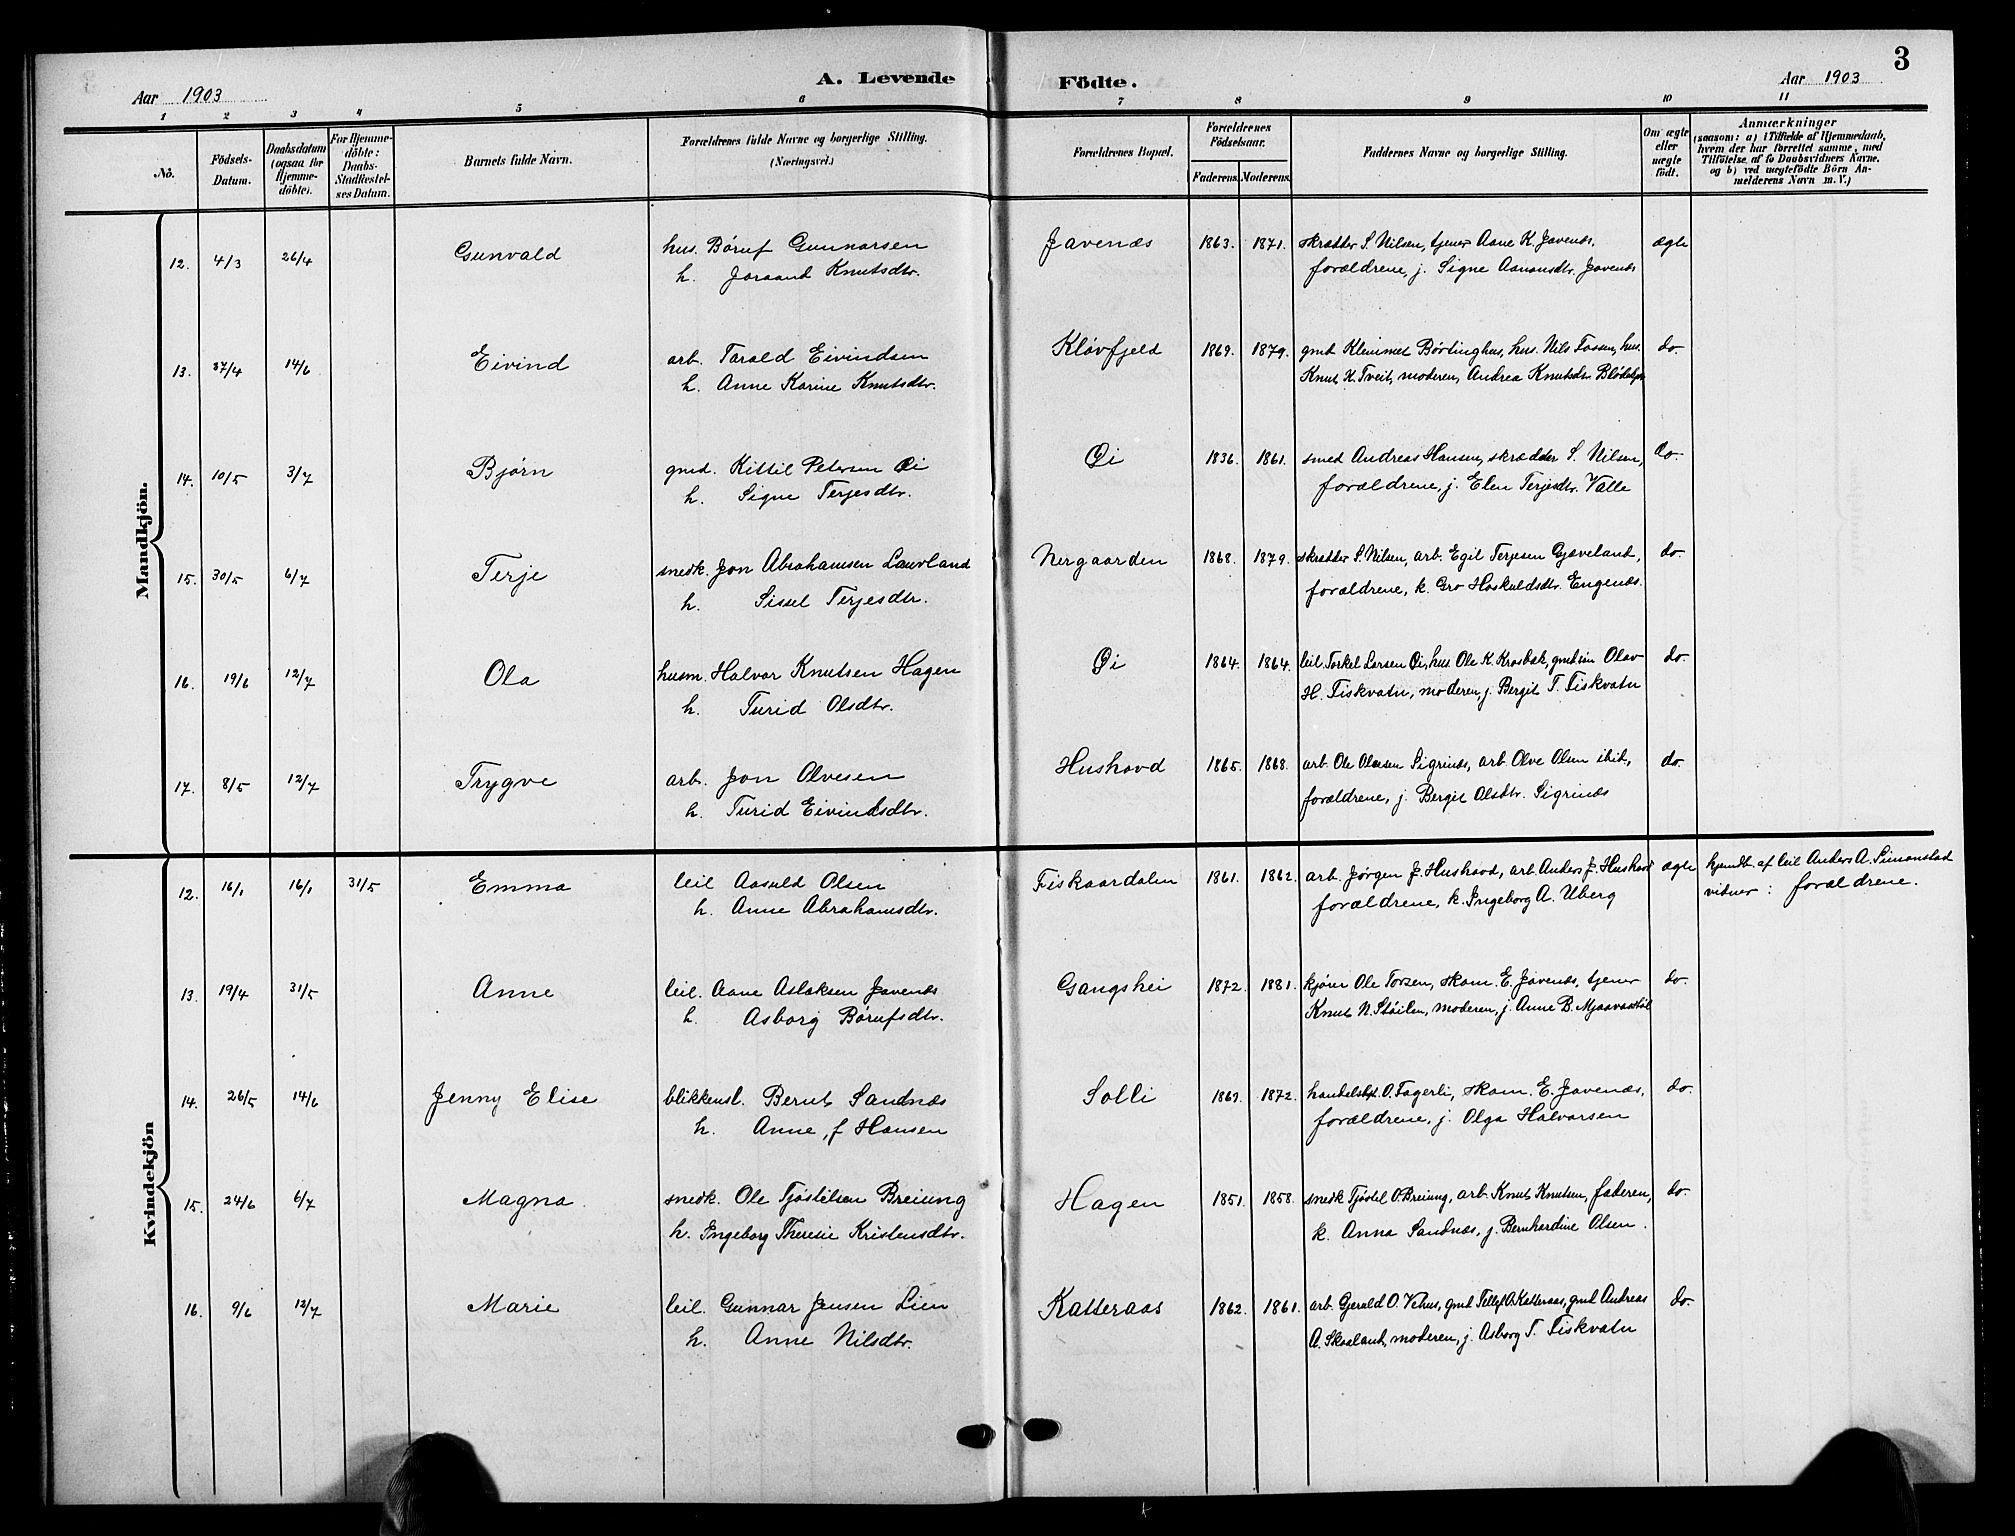 3
A. Levende Födte.
Aar 1903
Aar 1903
1 2 3 4 5 6 7 8 9 10 11
No.
Födsels-Datum.
Daabsdatum (ogsaa for Hjemme-döbte).
For Hjemme-döbte: Daabs-Stadfæstel-ses Datum.
Barnets fulde Navn.
Forældrenes fulde Navne og borgerlige Stilling. (Næringsvei.)
Forældrenes Bopæl.
Forældrenes Födselsaar.
Faderens. Moderens.
Faddernes Navne og borgerlige Stilling.
Om ægte eller uægte födt.
Anmærkninger
(saasom: a) i Tilfælde af Hjemmedaab, hvem der har forrettet samme, med Tilföielse af to Daabsvidners Navne. og b) ved uægtefödte Börn An-melderens Navn m. V.)
Mandkjön.
12. 4/3 26/4 Gunvald hus. Børuf Gunnarsen Javenæs 1863. 1871. skrædder S. Nilsen, tjener Aane K. Javenæs, ægte
h. Joraand Knutsdtr. forældrene, j. Signe Aanonsdtr. Javenæs
13. 27/4 14/6 Eivind arb. Tarald Eivindsen Kløvfjeld 1869. 1879. gmd Klemmet Børtinghus, hus. Nils Fossen, hus. do.
h. Anne Karine Knutsdtr. Knut K. Tveit, moderen, Andrea Knutsdtr.
14. 10/5 3/7 Bjørn gmd. Kittil Petersen Øi Øi 1836. 1861. smed Andreas Hansen, skrædder S. Nilsen, do.
h. Signe Terjesdtr. forældrene, j. Elen Terjesdtr. Valle
15. 30/5 6/7 Terje snedk. Jon Abrahamsen Laurland Nergaarden 1868. 1879. skrædder S. Nilsen, arb. Egil Terjesen Gjæveland, do.
h. Sissel Terjesdtr. forældrene, k. Gro Hoskuldsdtr. Engenæs.
16. 19/6 12/7 Ola husm. Halvor Knutsen Hagen Øi 1864. 1864. leil. Torkel Larsen Øi, hus. Ole K. Krosbæk, gmdsøn Olav do.
h. Turid Olsdtr. H. Fiskvatn, moderen, j. Bergit T. Fiskvatn
17. 8/5 12/7 Trygve arb. Jon Olvesen Hushovd 1865. 1868. arb. Ole Olesen Sigrinæs, arb. Olve Olsen ibid., do.
h. Turid Eivindsdtr. forældrene, j. Bergit Olsdtr. Sigrinæs
Kvindekjön
12. 16/1 16/1 31/5 Emma leil Aasuld Olsen Fiskaardalen 1861. 1862. arb. Jørgen J. Hushovd, arb. Anders J. Hushovd ægte hjemdt. af leil Anders A. Simonstad
h. Anne Abrahamsdtr. forældrene, k. Ingeborg A. Uberg vidner: forældrene.
13. 19/4 31/5 Anne leil. Aane Aslaksen Javenæs Gangshei 1872. 1881. kjører Ole Torsen, skom. E. Javenæs, tjener do.
h. Asborg Børufsdtr. Knut N. Støilen, moderen, j. Anne B. Mjaavasstøl
14. 26/5 14/6 Jenny Elise blikkensl. Bernt Sandnæs Solli 1869. 1872. handelsbet. O. Fagerli, skom. E. Javenæs, do.
h. Anne, f Hansen forældrene, j. Olga Halvorsen
15. 24/6 6/7 Magna. snedk. Ole Tjøstelsen Breiung Hagen 1851. 1858. snedk Tjøstel O. Breiung, arb. Knut Knutsen, faderen, do.
h. Ingeborg Theresie Kristensdtr. k. Anna Sandnæs, j. Bernhardine Olsen.
16. 9/6 12/7 Marie leil. Gunnar Jensen Lien Katteraas 1862. 1861. arb. Gjerald O. Vehus, gmd Tellef O. Katteraas, gmd Andreas do.
h. Anne Nilsdtr. A. Skaaland, moderen, j. Asborg T. Fiskvatn